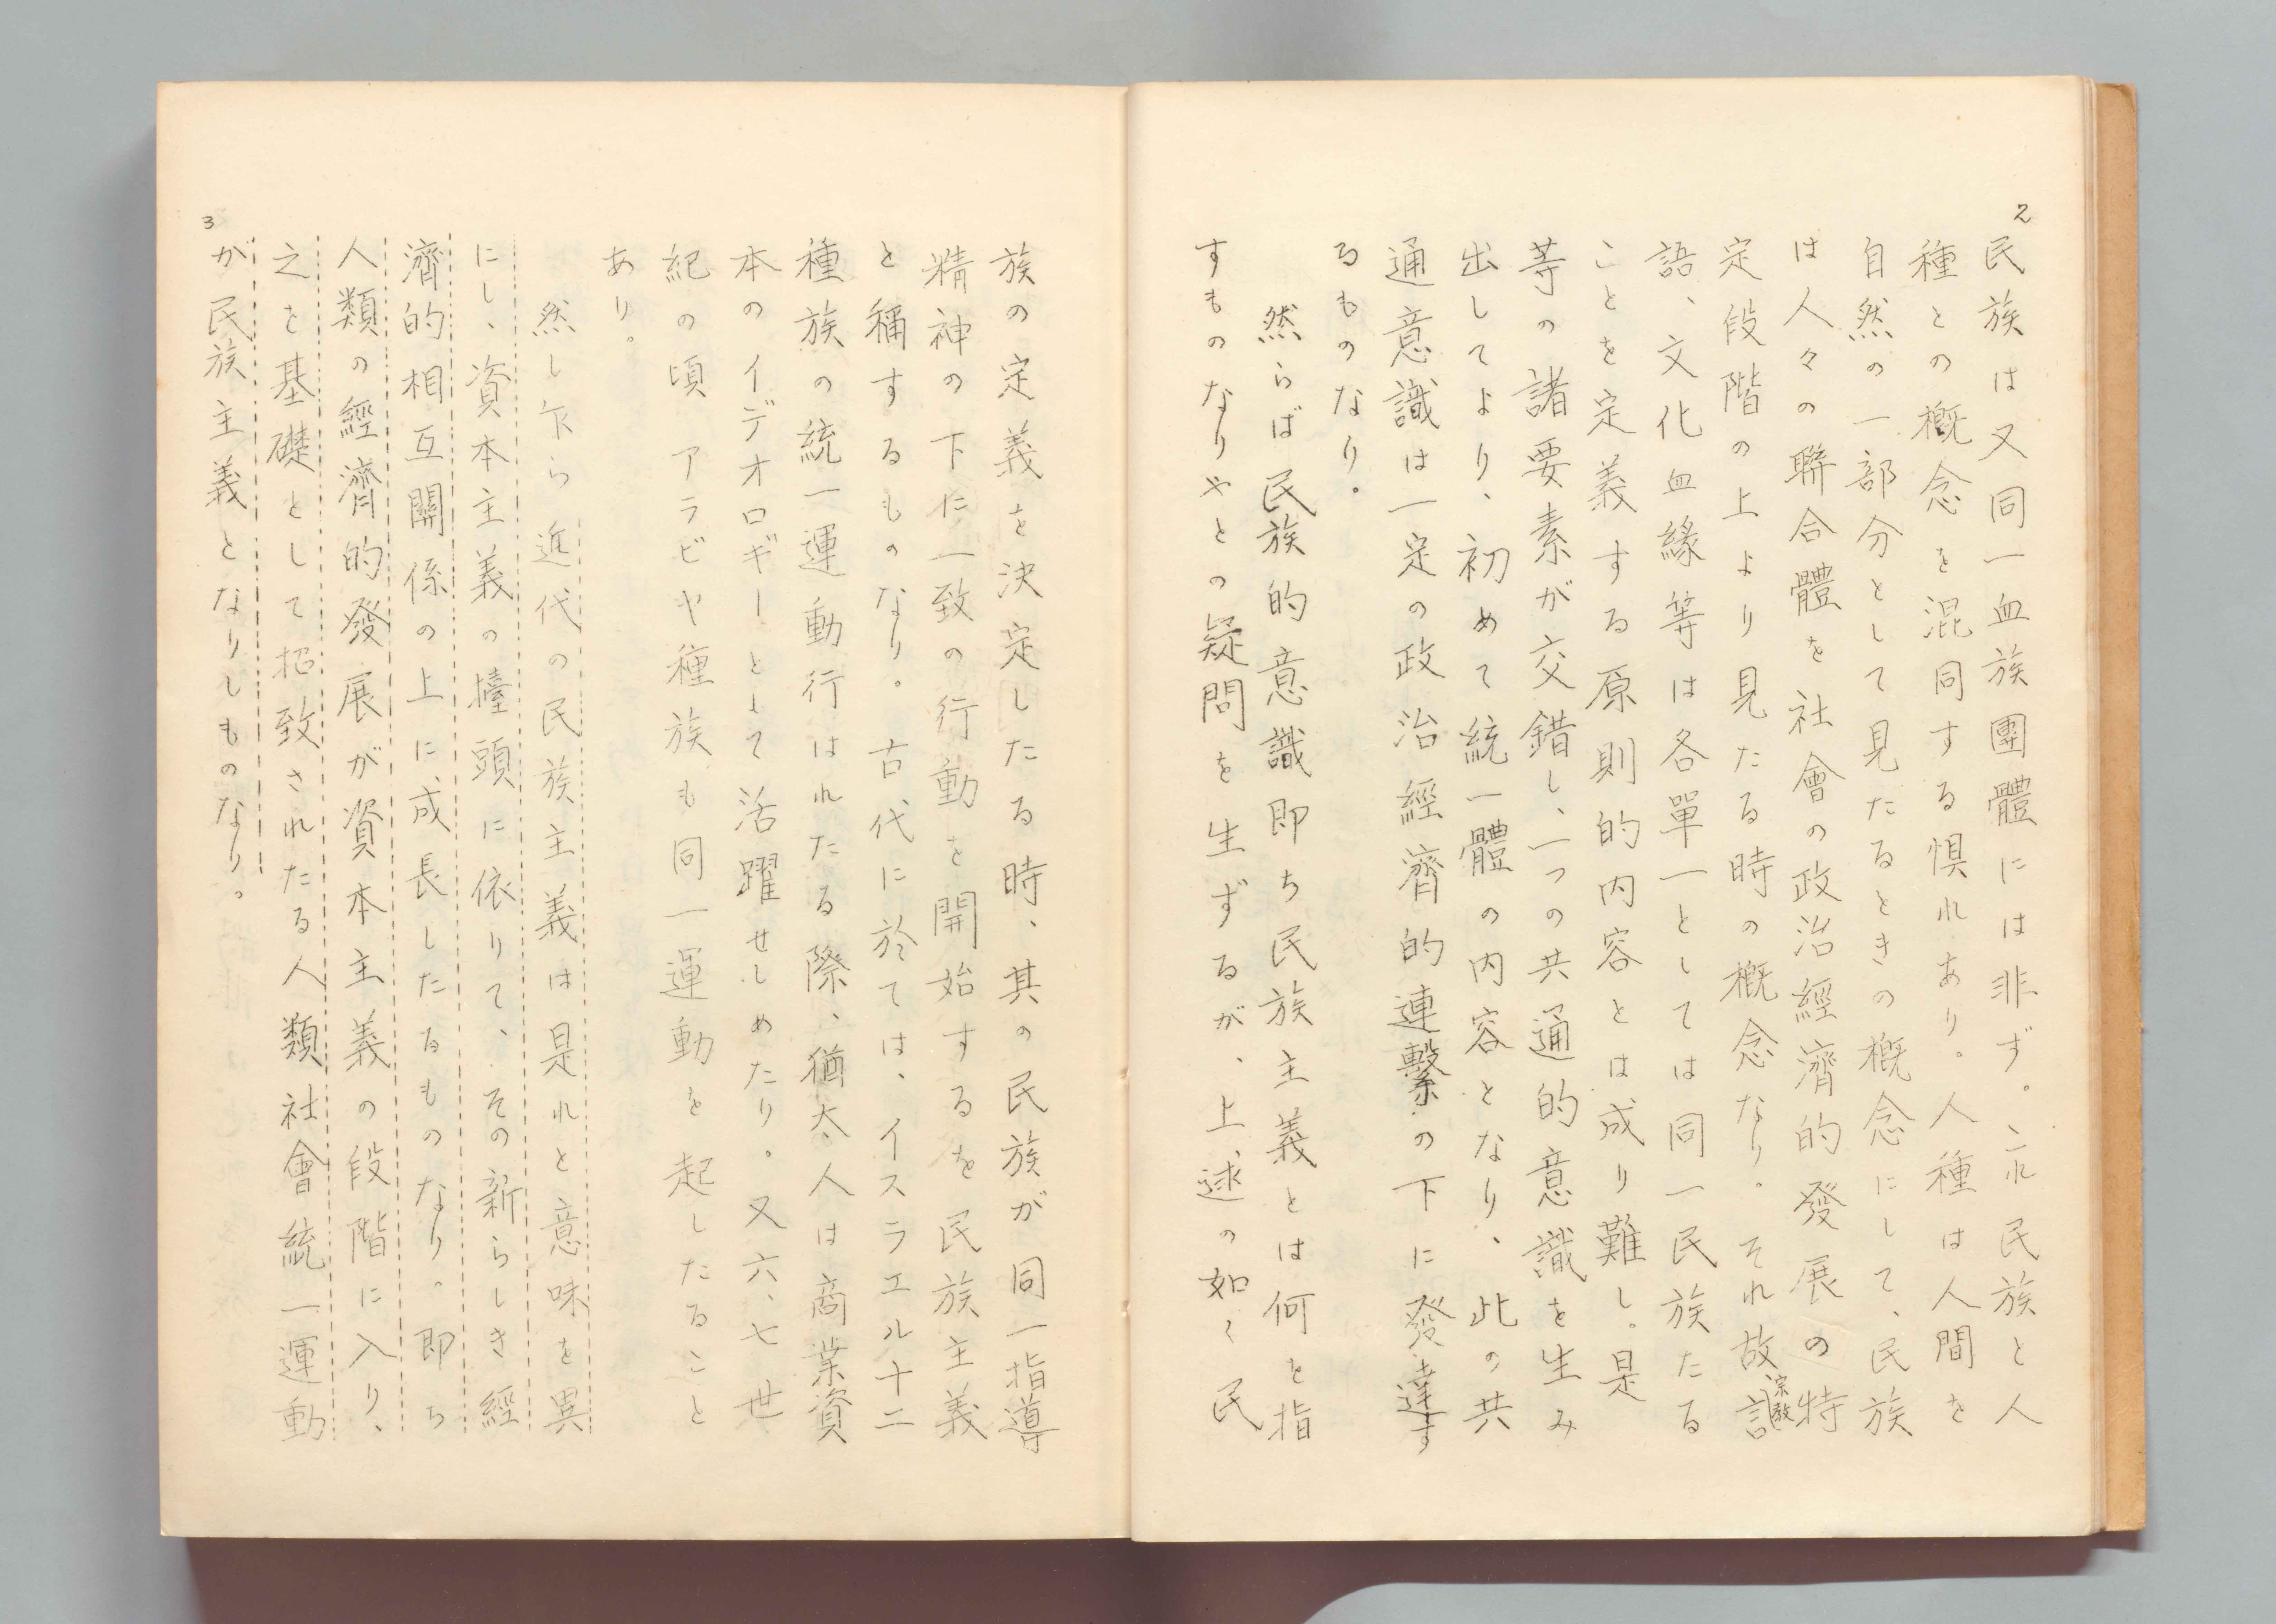 2
民族は又同一血族團體には非ず。これ民族と人
種との概念を混同する惧れあり。人種は人間を
自然の一部分として見たるときの概念にして、民族
は人々の聯合體を社會の政治經濟的發展の特
定段階の上より見たる時の概念なり。それ故宗教言
語、文化血緣等は各單一としては同一民族たる
ことを定義する原則的内容とは成り難し。是
等の諸要素が交錯し、一つの共通的意識を生み
出してより、初めて統一體の内容となり、此の共
通意識は一定の政治經濟的連繫の下に發達す
るものなり。
然らば民族的意識即ち民族主義とは何を指
すものなりやとの疑問を生ずるが、上述の如く民
族の定義を決定したる時、其の民族が同一指導
精神の下に一致の行動を開始するを民族主義
と稱するものなり。古代に於ては、イスラエル十二
種族の統一運動行はれたる際、猶太人は商業資
本のイデオロギーとして活躍せしめたり。又六、七世
紀の頃アラビヤ種族も同一運動を起したること
あり。
然し乍ら近代の民族主義は是れと意味を異
にし、資本主義の擡頭に依りて、その新らしき經
濟的相互關係の上に成長したるものなり。即ち
人類の經濟的發展が資本主義の段階に入り、
之を基礎として招致されたる人類社會統一運動
が民族主義となりしものなり。
3